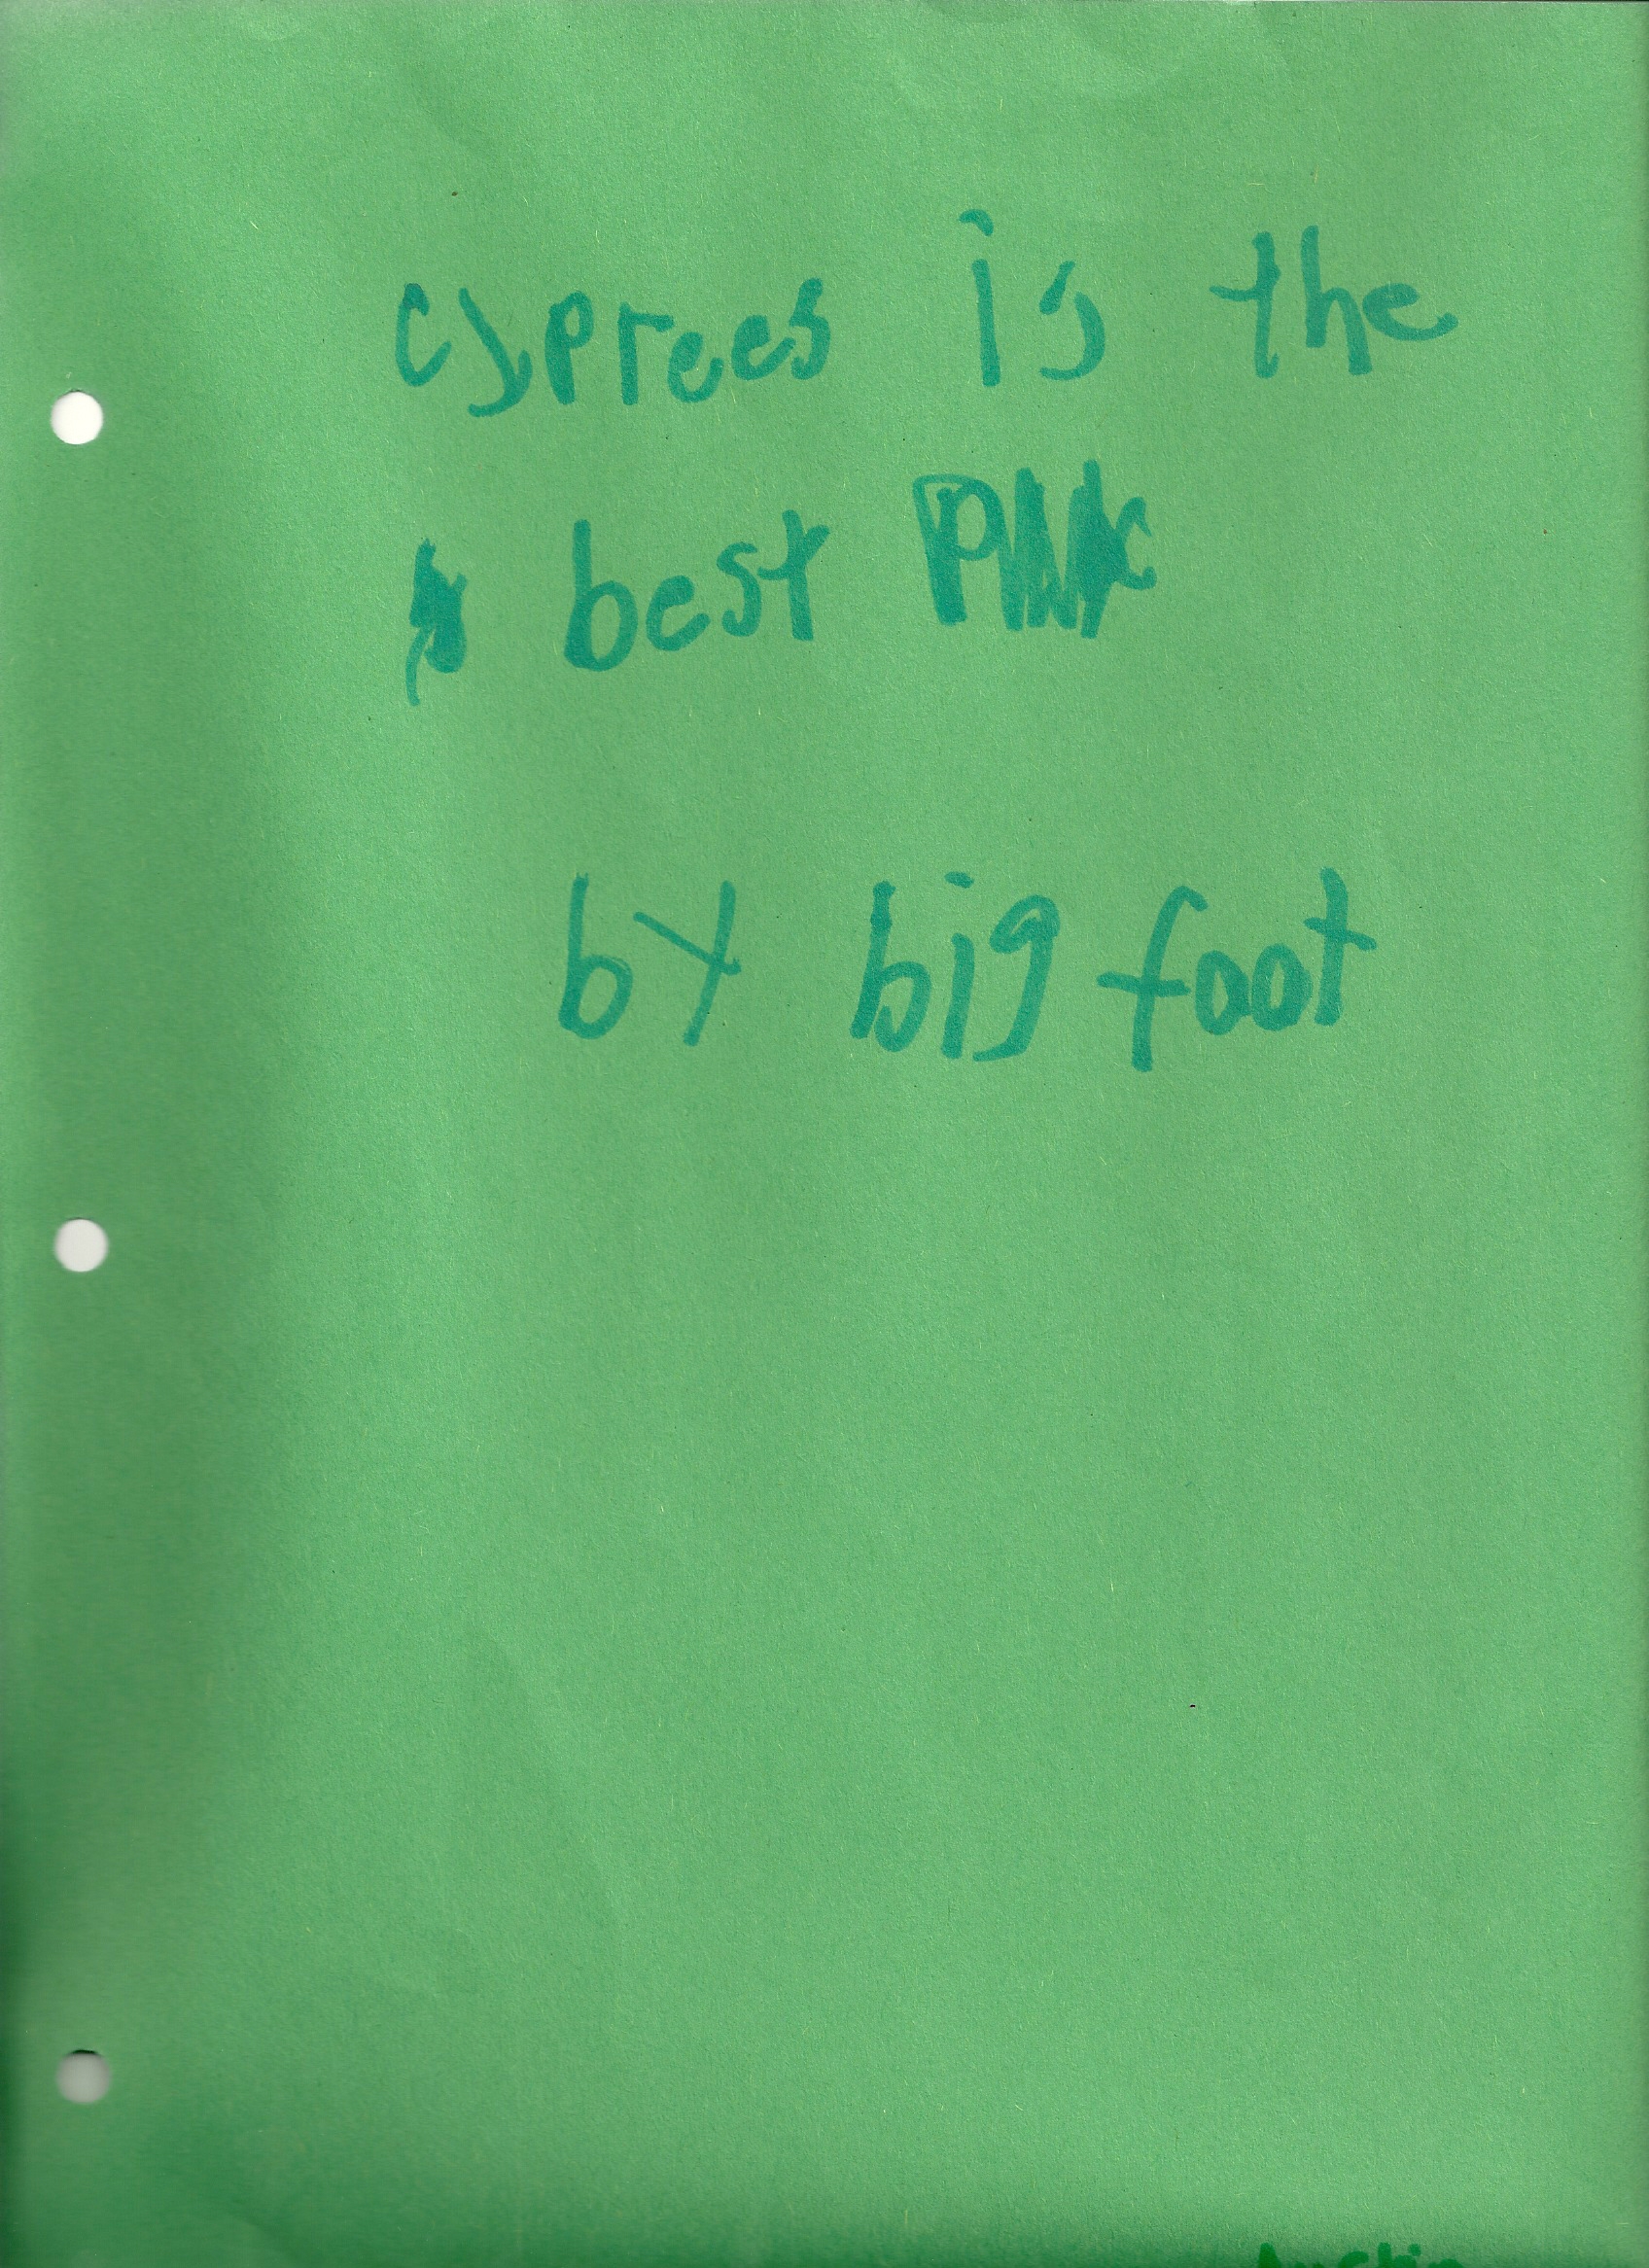 cyprees is the
best
by big foot